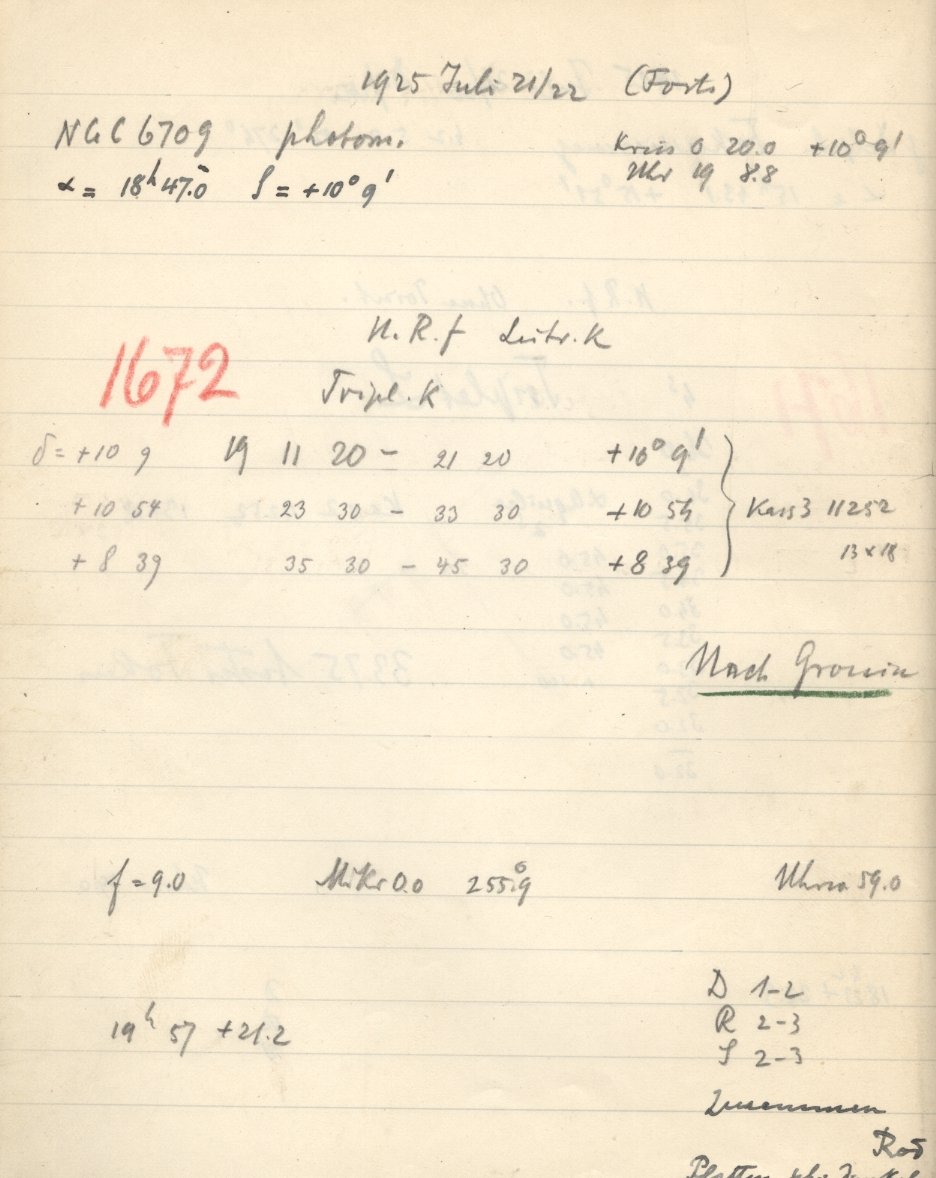 1925 Juli 21/22 (Forts)
NGC 6709 photom.
Kreis 0 20.0 +10° 9'
Uhr 19 8.8
α = 18h 47.0 δ = +10° 9'
H.R.f Leitr.K
1672
Tripl.K
δ = +10 9 19 11 20 – 21 20 +10° 9'
+10 54 23 30 – 33 30 +10 54
Kass 3 11252
+8 39 35 30 – 45 30 +8 39
13 x 18
Nach
f = 9.0 Mikr 0.0 255.°9 59.0
D 1–2
19h 57 +21.2
R 2–3
S 2–3
Zusammen
Platten